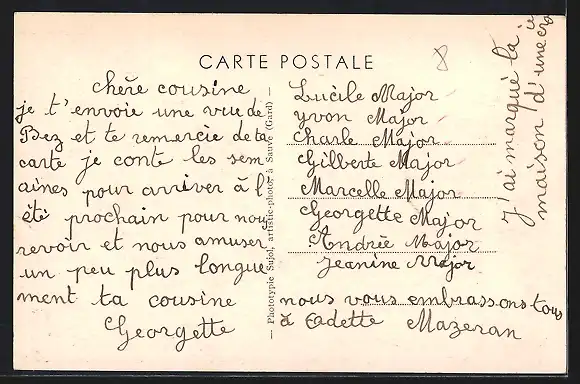 CARTE POSTALE
8
chère cousine
je t'envoie une vue de
Bez et te remercie de ta
carte je conte les sem
aines pour arriver à l'
été prochain pour nous
revoir et nous amuser
un peu plus longue
ment ta cousine
Georgette
— Phototypie Sujol, artistic-photos à Sauve (Gard) —
Lucile Major
Yvon Major
Charle Major
Gilberte Major
Marcelle Major
Georgette Major
Andrée Major
Jeanine Major
nous vous embrassons tous
à Cadette Mazeran
J'ai marqué la
maison d'une cro